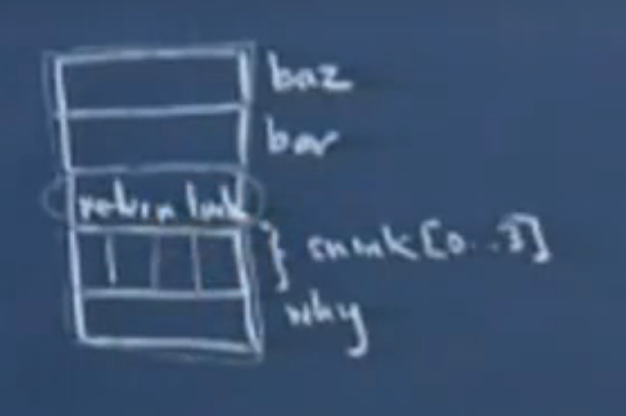 baz
bar
return link
snink [0..3]
why